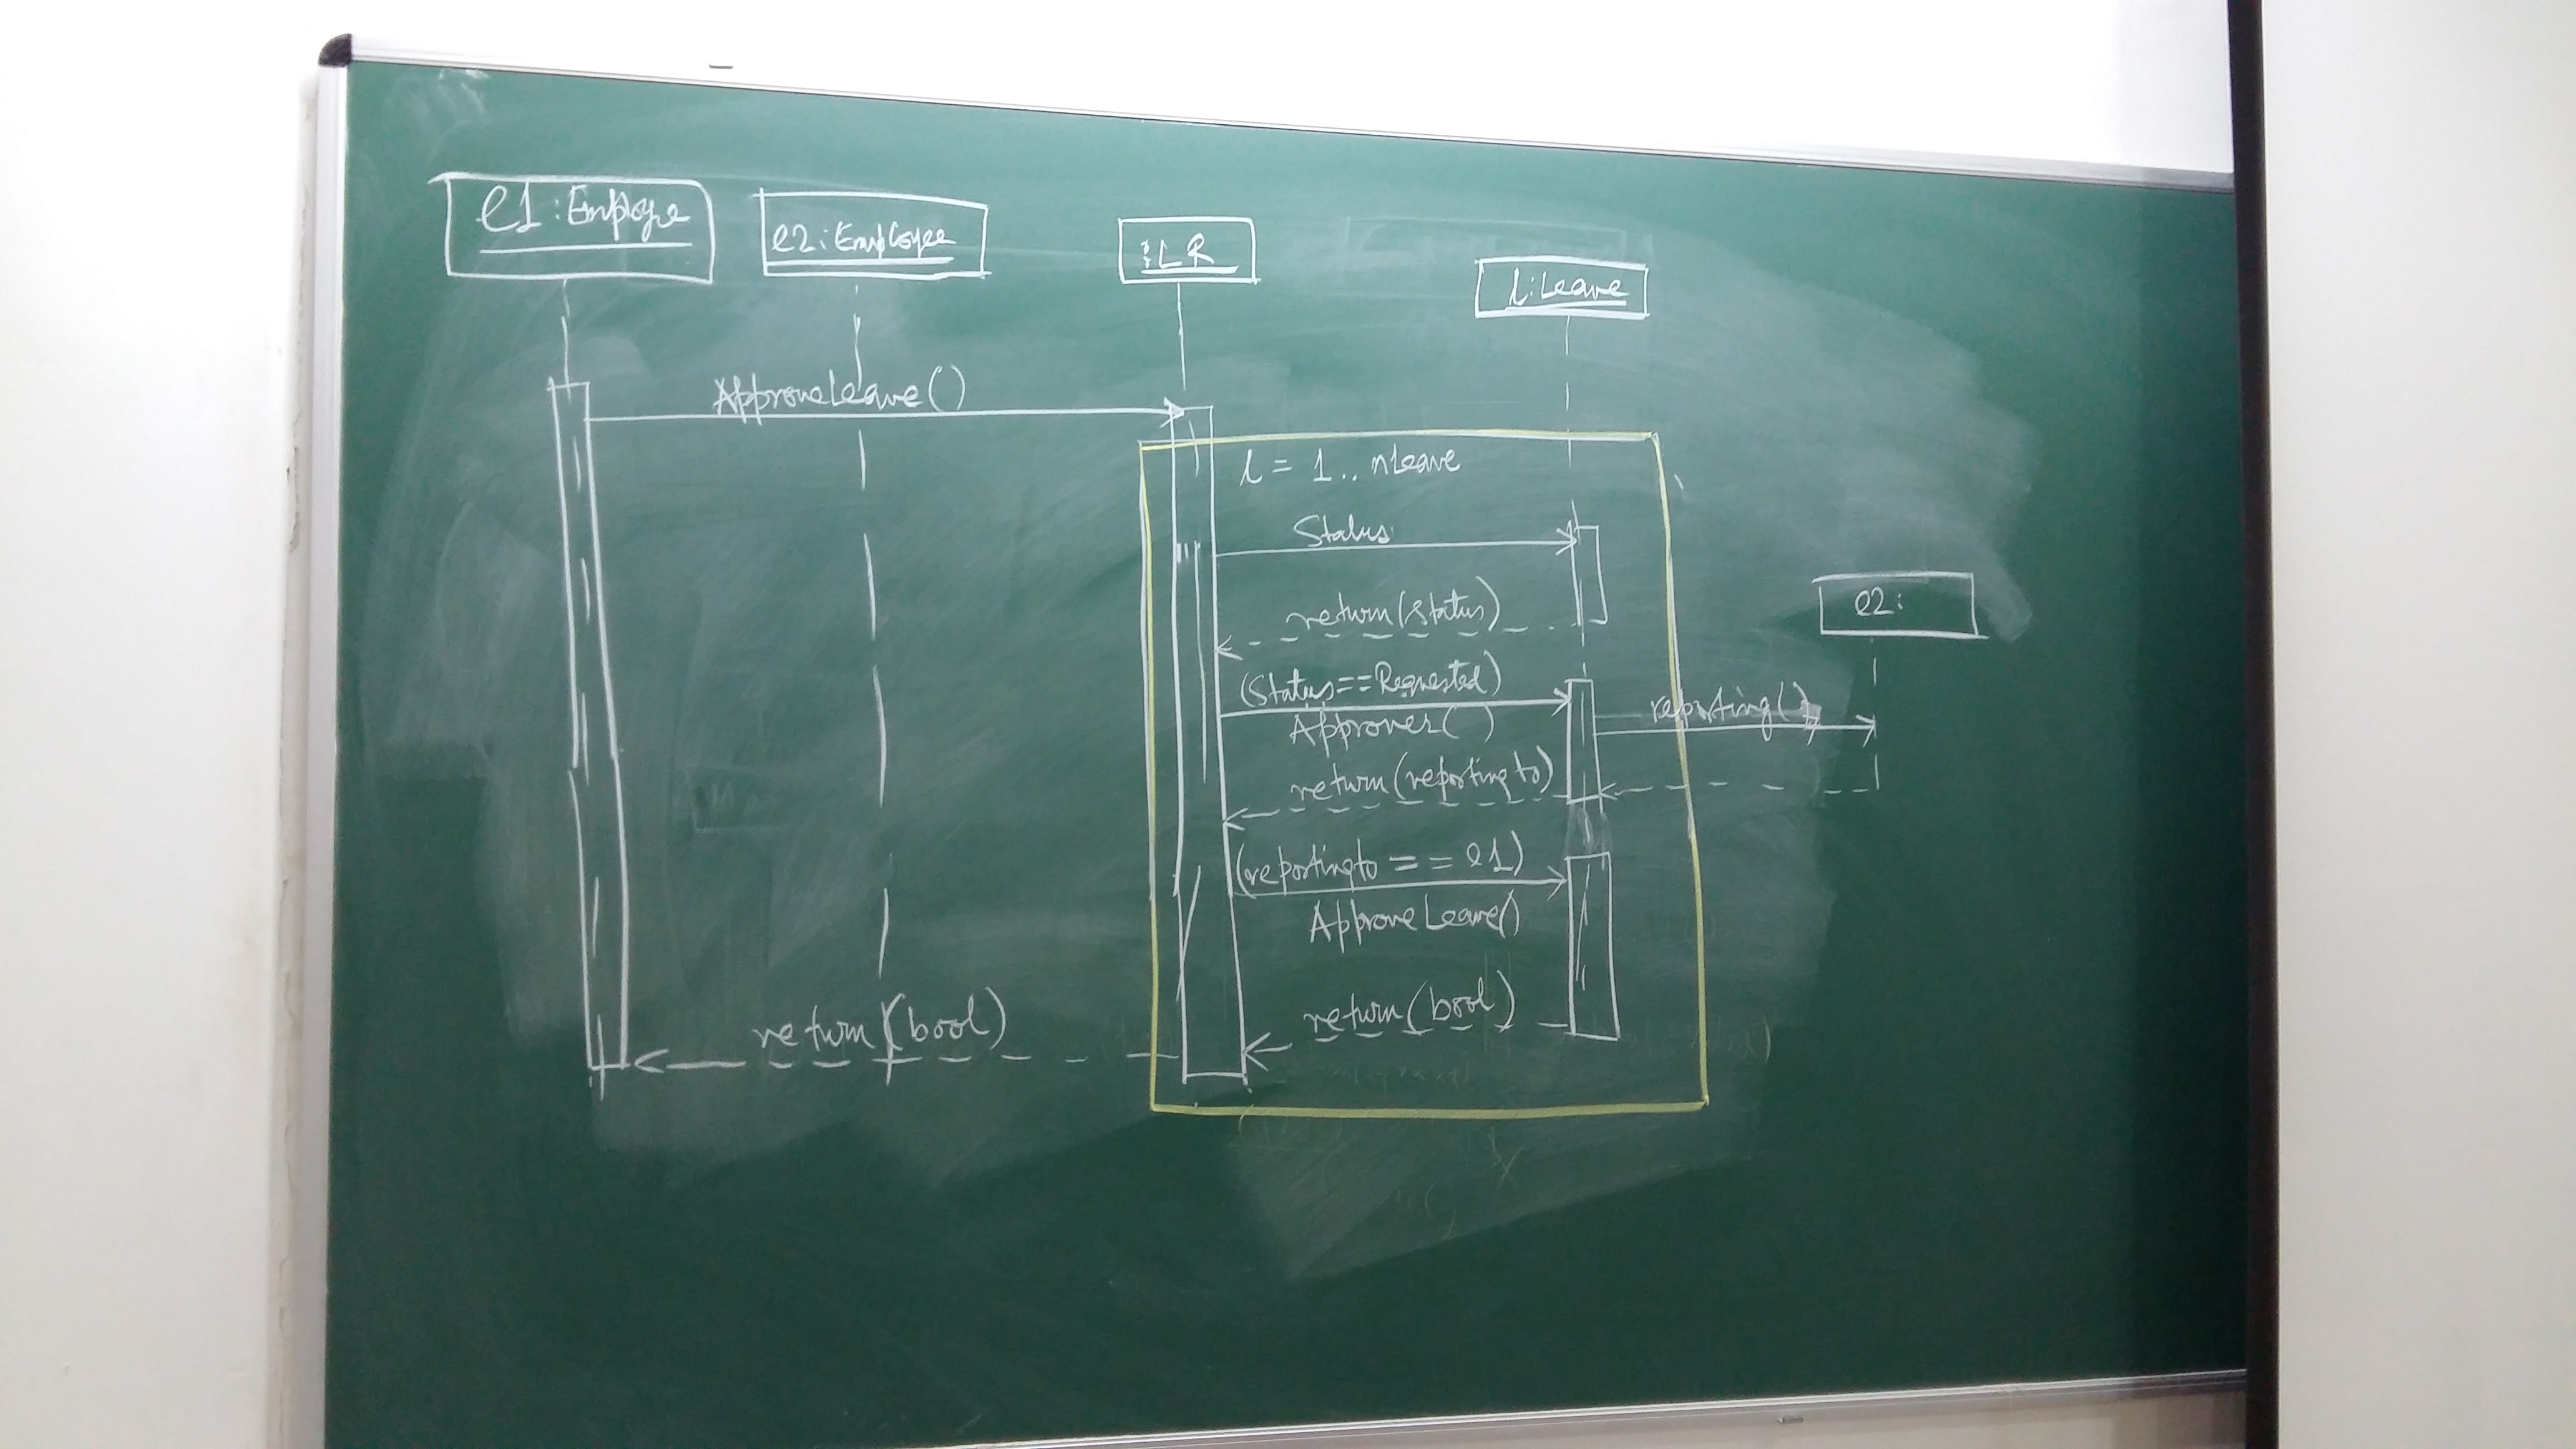 e1:Employe
e2:Employee
:LR
l:Leave
ApproveLeave()
l = 1.. nLeave
Status
return(status)
e2:
(Status==Requested)
Approver()
reporting()
return(reportingto)
(reportingto == e1)
ApproveLeave()
return(bool)
return(bool)